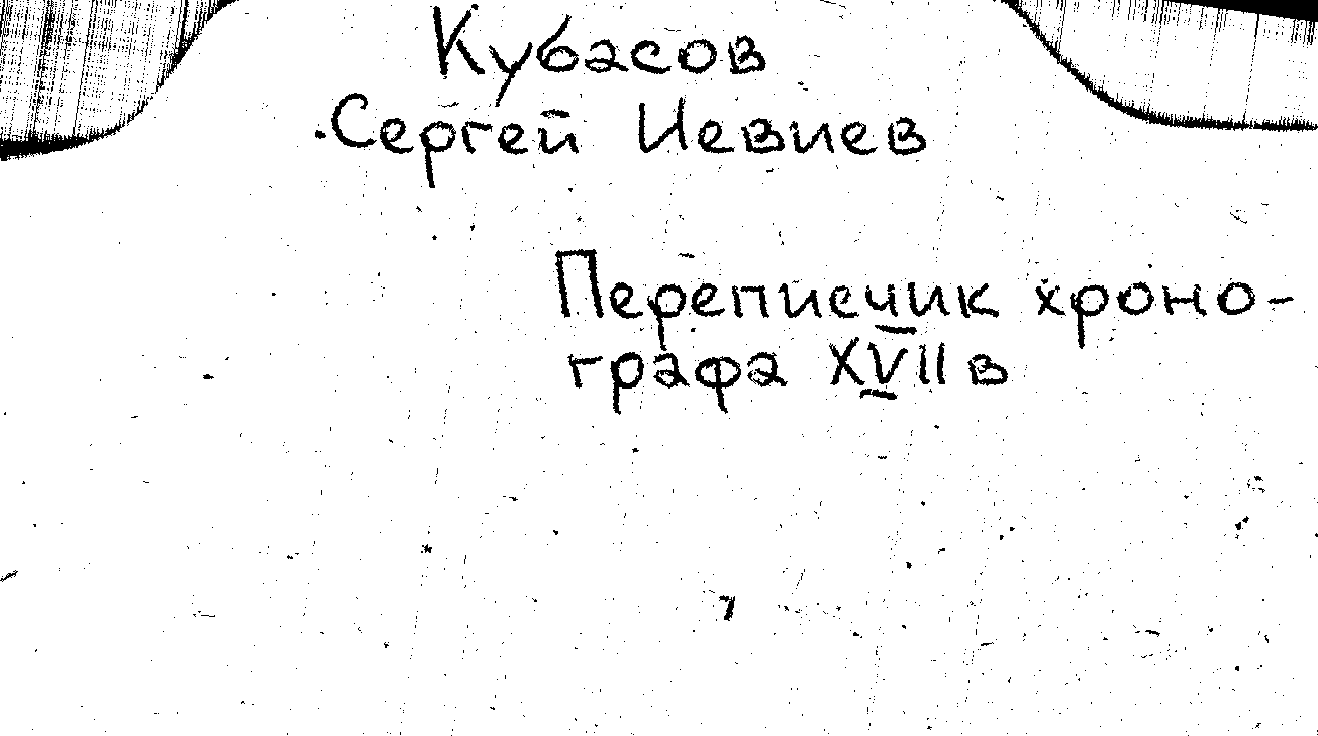 Кубасов
Сергей Иевиев
Переписчик хроно-
графа XVII в